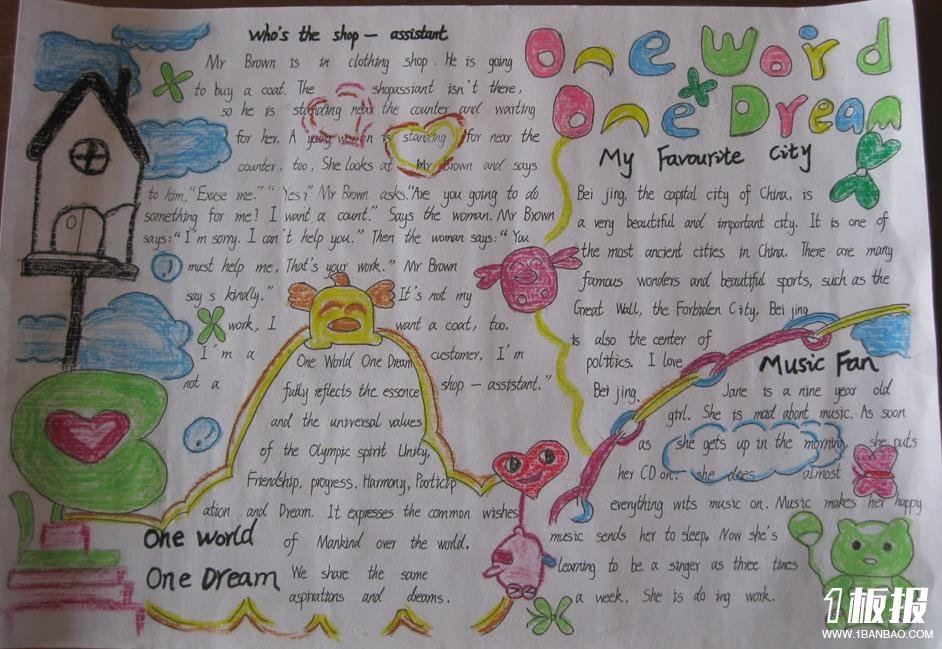 Who's the shop - assistant
Mr Brown is in clothing shop. He is going
to buy a coat. The shopassiant isn't there,
so he is standing near the counter and waiting
for her. A young women is standing for near the
counter, too, She looks at Mr Brown and says
to him, "Exuse me." "Yes?" Mr Brown asks. "Are you going to do
something for me? I want a count." Says the woman. Mr Brown
says: "I'm sorry. I can't help you." Then the woman says: "You
must help me, That's your work." Mr Brown
say s kindly." It's not my
work, I want a coat, too.
I'm a customer, I'm
not a shop - assistant."
One World One Dream
fully reflects the essence
and the universal values
of the Olympic spirit Unity,
Friendship, progress, Harmony, Particip
ation and Dream. It expresses the common wishes
of Mankind over the world.
We share the same
aspirations and dreams.
One world
One Dream
One Word
One Dream
My Favourite City
Bei jing, the capital city of China, is
a very beautiful and important city. It is one of
the most ancient cities in China. There are many
famous wonders and beautiful sports, such as the
Great Wall, the Forbiden City, Bei jing
is also the center of
politics. I love
Bei jing.
Music Fan
Jane is a nine year old
girl. She is mad about music. As soon
as she gets up in the morning, she puts
her CD on. she does almost
everything wits music on. Music makes her happy
music sends her to sleep. Now she's
learning to be a singer as three times
a week. She is do ing work.
1板报
WWW.1BANBAO.COM